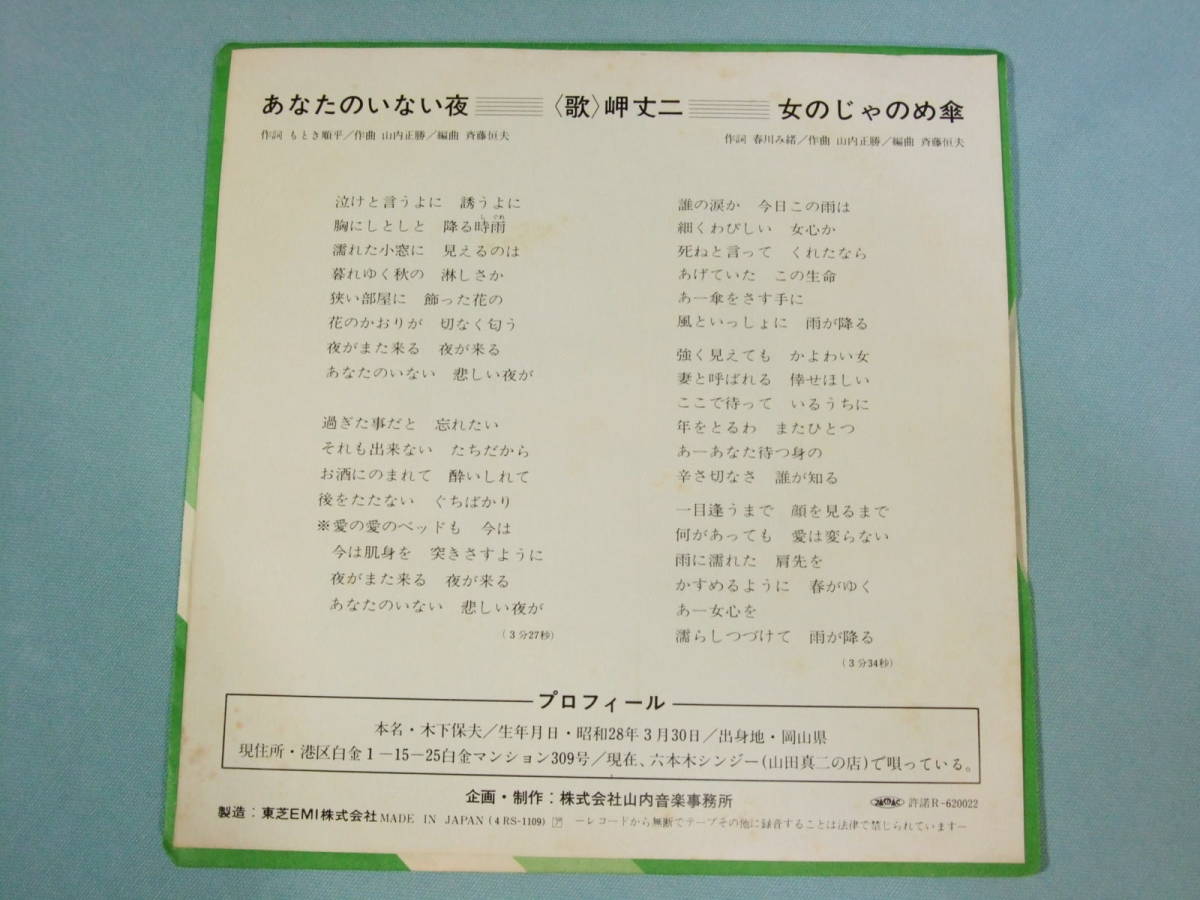 あなたのいない夜 〈歌〉岬丈二 女のじゃのめ傘
作詞 もとき順平／作曲 山内正勝／編曲 斉藤恒夫
作詞 春川み緒／作曲 山内正勝／編曲 斉藤恒夫
泣けと言うよに 誘うよに
胸にしとしと 降る時雨
しぐれ
濡れた小窓に 見えるのは
暮れゆく秋の 淋しさか
狭い部屋に 飾った花の
花のかおりが 切なく匂う
夜がまた来る 夜が来る
あなたのいない 悲しい夜が
過ぎた事だと 忘れたい
それも出来ない たちだから
お酒にのまれて 酔いしれて
後をたたない ぐちばかり
※愛の愛のベッドも 今は
今は肌身を 突きさすように
夜がまた来る 夜が来る
あなたのいない 悲しい夜が
(3分27秒)
誰の涙か 今日この雨は
細くわびしい 女心か
死ねと言って くれたなら
あげていた この生命
あー傘をさす手に
風といっしょに 雨が降る
強く見えても かよわい女
妻と呼ばれる 倖せほしい
ここで待って いるうちに
年をとるわ またひとつ
あーあなた待つ身の
辛さ切なさ 誰が知る
一目逢うまで 顔を見るまで
何があっても 愛は変らない
雨に濡れた 肩先を
かすめるように 春がゆく
あー女心を
濡らしつづけて 雨が降る
(3分34秒)
プロフィール
本名・木下保夫／生年月日・昭和28年3月30日／出身地・岡山県
現住所・港区白金1－15－25白金マンション309号／現在、六本木シンジー(山田真二の店)で唄っている。
企画・制作：株式会社山内音楽事務所
許諾R-620022
製造：東芝EMI株式会社 MADE IN JAPAN (4RS-1109) ㋐ －レコードから無断でテープその他に録音することは法律で禁じられています－